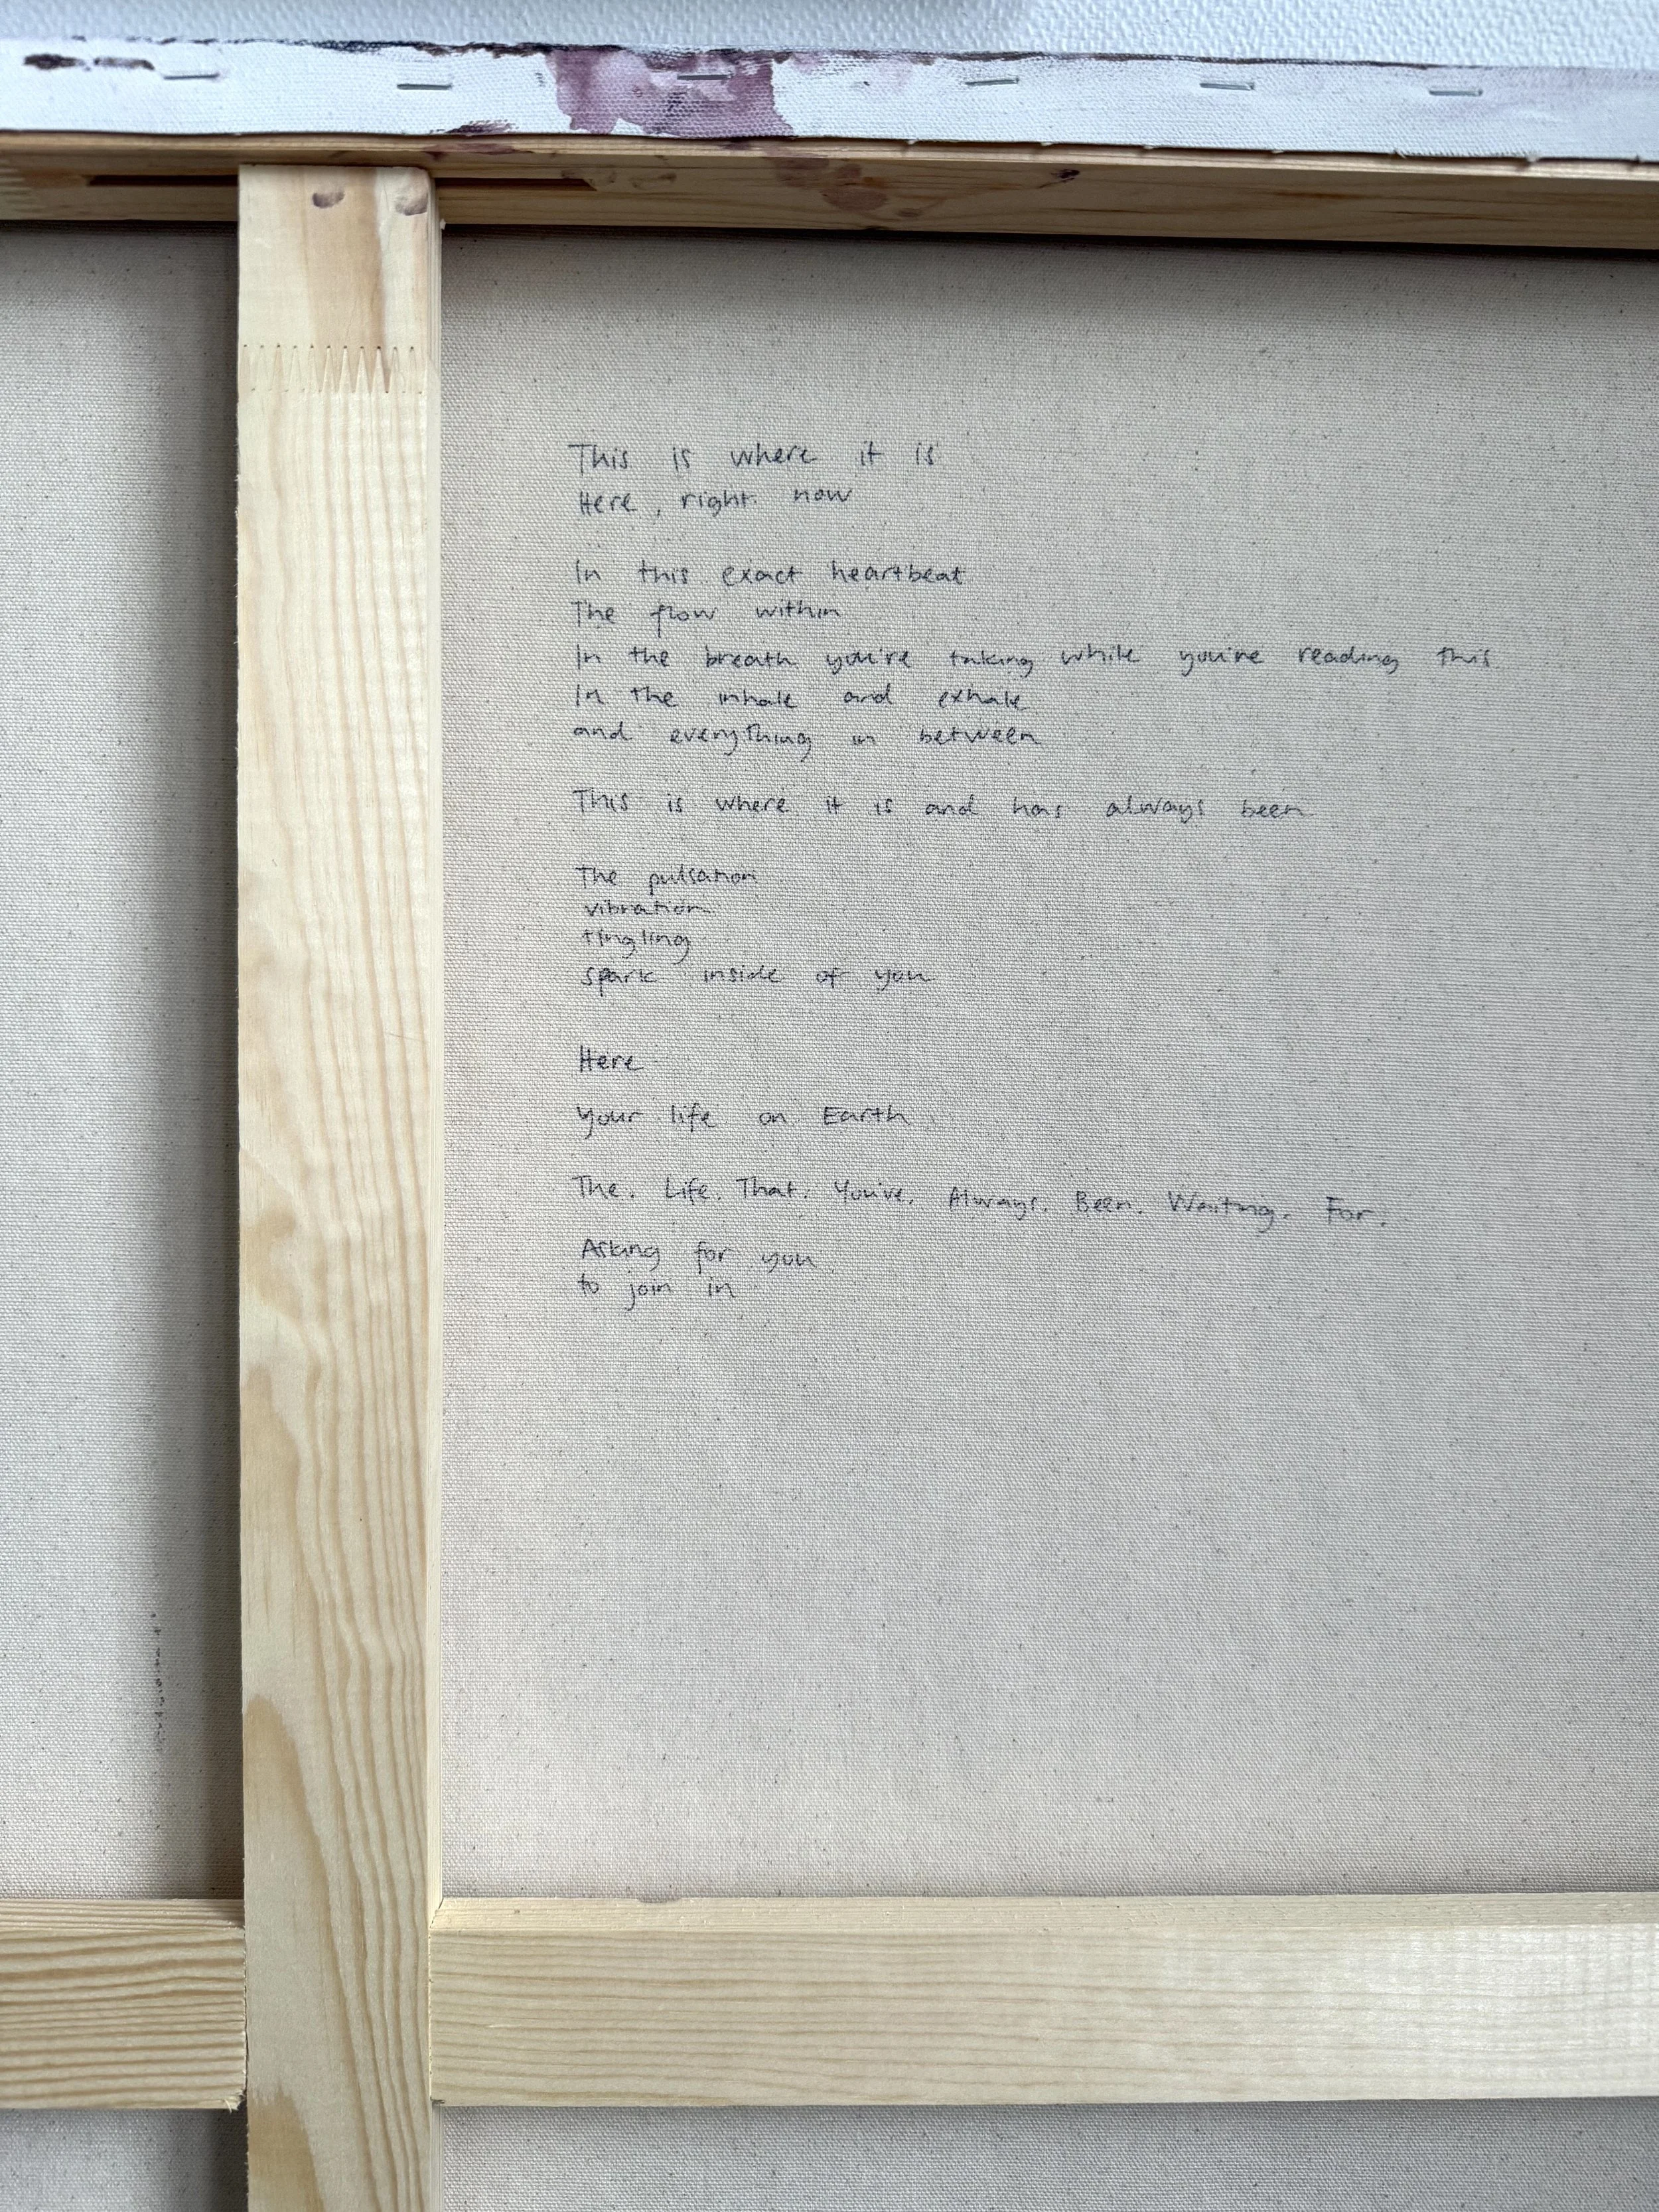 This is where it is
Here, right now
In this exact heartbeat
The flow within
In the breath you're taking while you're reading this
In the inhale and exhale
and everything in between
This is where it is and has always been
The pulsation
vibration
tingling
spark inside of you
Here
your life on Earth
The. Life. That. You've. Always. Been. Waiting. For.
Asking for you
to join in